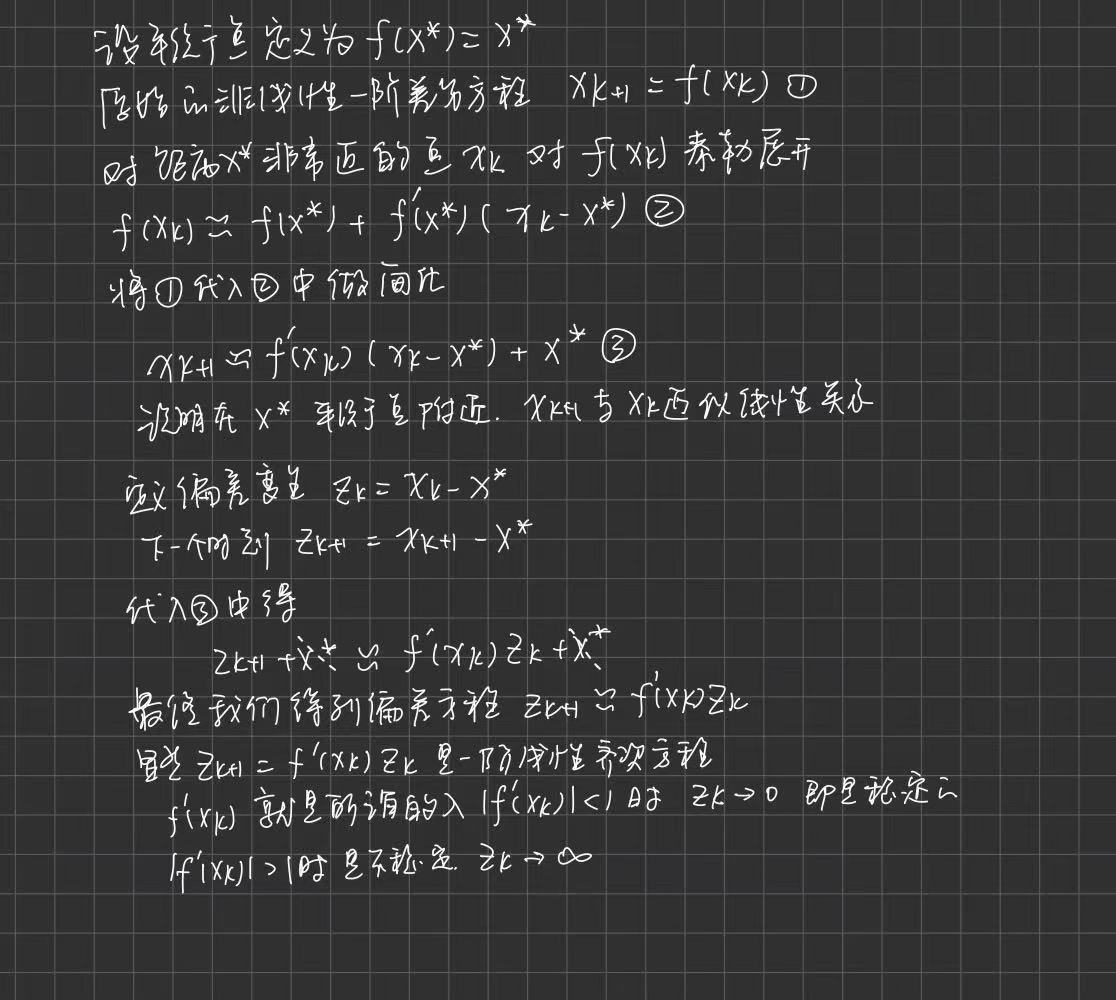 设平衡点定义为 f(x*) = x*
原始的非线性一阶差分方程 xk+1 = f(xk) ①
对距离x*非常近的点 xk 对 f(xk) 泰勒展开
f(xk) ≈ f(x*) + f'(x*)(xk - x*) ②
将①代入②中做简化
xk+1 ≈ f'(xk)(xk - x*) + x* ③
说明在 x* 平衡点附近. xk+1 与 xk 近似线性关系
定义偏差变量 zk = xk - x*
下一个时刻 zk+1 = xk+1 - x*
代入③中得
zk+1 + x* ≈ f'(xk)zk + x*
最终我们得到偏差方程 zk+1 ≈ f'(xk)zk
显然 zk+1 = f'(xk)zk 是一阶线性齐次方程
f'(xk) 就是所谓的λ |f'(xk)|<1时 zk→0 即是稳定的
|f'(xk)|>1时是不稳定. zk→∞